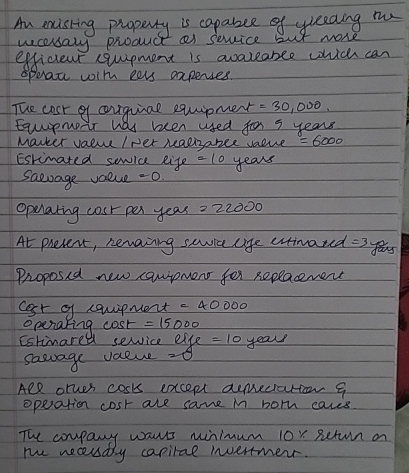 An existing property is capable of yielding the
necessary product or service but more
efficient equipment is available which can
operate with less expenses.
The cost of original equipment = 30,000.
Equipment has been used for 5 years
Market value / Net realizable value = 6000
Estimated service life = 10 years
Salvage value = 0.
Operating cost per year = 22000
At present, remaining service life estimated = 3 years
Proposed new equipment for replacement
Cost of equipment = 40000
Operating cost = 15000
Estimated service life = 10 years
Salvage value = 0
All other costs except depreciation &
operation cost are same in both cases.
The company wants minimum 10% return on
the necessary capital investment.